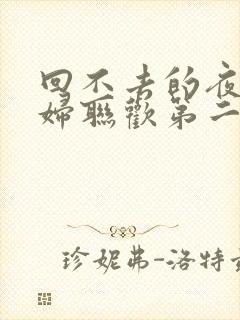 回不去的夜
婦聯歡第二
珍妮弗-洛特